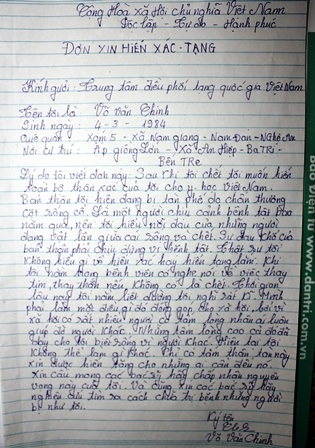 Cộng Hoà xã Hội chủ nghĩa Việt Nam
Độc lập - Tự do - Hạnh phúc
ĐƠN XIN HIẾN XÁC - TẠNG
Kính gưởi: Trung tâm điều phối tạng quốc gia Việt Nam
Tên tôi là Võ văn Chinh
Sinh ngày: 4-3-1984
Quê quán: Xóm 5 - Xã Nam giang - Nam Đàn - Nghệ An
Nơi cư trú: Ấp giồng Lân - Xã An Hiệp - Ba Tri -
Bến Tre
Lý do tôi viết đơn này: Sau khi tôi chết tôi muốn hiến
toàn bộ thân xác của tôi cho y học Việt Nam.
Bản thân tôi hiện đang bị tàn phế do chấn thương
cột sống cổ. Là một người chịu cảnh bệnh tật bao
năm qua, nên tôi hiểu nỗi đau của những người
đang vật lộn giữa cái sống và chết. Sự đau khổ của
bản thân phải chịu đựng vì bệnh tật. Thật sự tôi
không hiểu gì về hiến xác hay hiến tạng lắm. Khi
tôi nằm trong bệnh viện có nghe nói về việc thay
tim, thay thận nếu không có là chết. Thời gian
lâu nay tôi nằm liệt giường tôi nghĩ rất kĩ. Mình
phải làm một điều gì đó đóng góp cho xã hội bởi vì
xã hội có rất nhiều người có tấm lòng nhân ái luôn
giúp đỡ người khác. Những tấm lòng cao cả đó đã
dạy cho tôi biết sống vì người khác. Hiện tại tôi
không thể làm gì khác. Chỉ có tấm thân tàn này
xin được hiến tặng cho những ai cần đến nó.
Xin cầu mong các bác sỹ hãy chấp nhận nguyện
vọng này của tôi. Và cũng xin các bác sỹ hãy
nghiên cứu tìm ra cách chữa trị bệnh những người
bị như tôi.
Ký tên
Võ Văn Chinh
Báo Điện tử www.dantri.com.vn